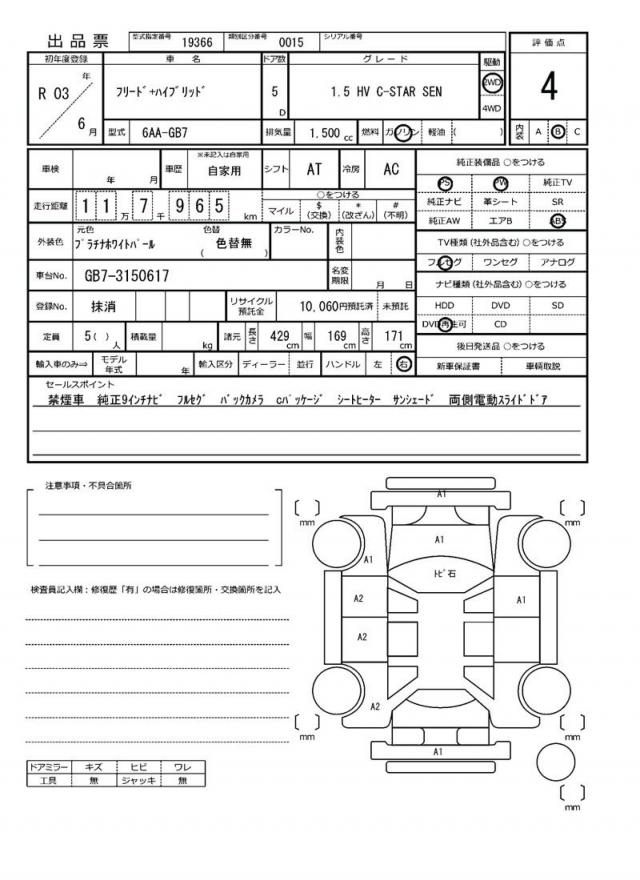 出品票 型式指定番号 19366 類別区分番号 0015 シリアル番号
評価点
4
初年度登録 車名 ドア数 グレード 駆動
R 03 年 6 月 フリード+ハイブリッド 5 D 1.5 HV C-STAR SEN 2WD
4WD
型式 6AA-GB7 排気量 1.500 cc 燃料 ガソリン 軽油 ( ) 内装 A B C
車検 年 月 車歴 ※未記入は自家用 自家用 シフト AT 冷房 AC
純正装備品 ○をつける
PS PW 純正TV
純正ナビ 革シート SR
純正AW エアB ABS
走行距離 1 1 万 7 千 9 6 5 km
○をつける
マイル $(交換) *(改ざん) #(不明)
TV種類(社外品含む) ○をつける
フルセグ ワンセグ アナログ
外装色 元色 プラチナホワイトパール 色替 ( 色替無 ) カラーNo. 内装色
ナビ種類(社外品含む) ○をつける
HDD DVD SD
DVD再生可 CD
車台No. GB7-3150617 名変期限 月 日
登録No. 抹消 リサイクル預託金 10,060円預託済 未預託
後日発送品 ○をつける
新車保証書 車輌取説
定員 5( ) 人 積載量 kg 諸元 長さ 429 cm 幅 169 cm 高さ 171 cm
輸入車のみ⇒ モデル年式 年 輸入区分 ディーラー 並行 ハンドル 左 右
セールスポイント
禁煙車 純正9インチナビ フルセグ バックカメラ cパッケージ シートヒーター サンシェード 両側電動スライドドア
注意事項・不具合箇所
検査員記入欄:修復歴「有」の場合は修復箇所・交換箇所を記入
A1
[ ] mm
[ ] mm
A1
A1
トビ石
A2
A1
A2
A2
[ ] mm
[ ] mm
A1
[ ] mm
ドアミラー キズ ヒビ ワレ
工具 無 ジャッキ 無